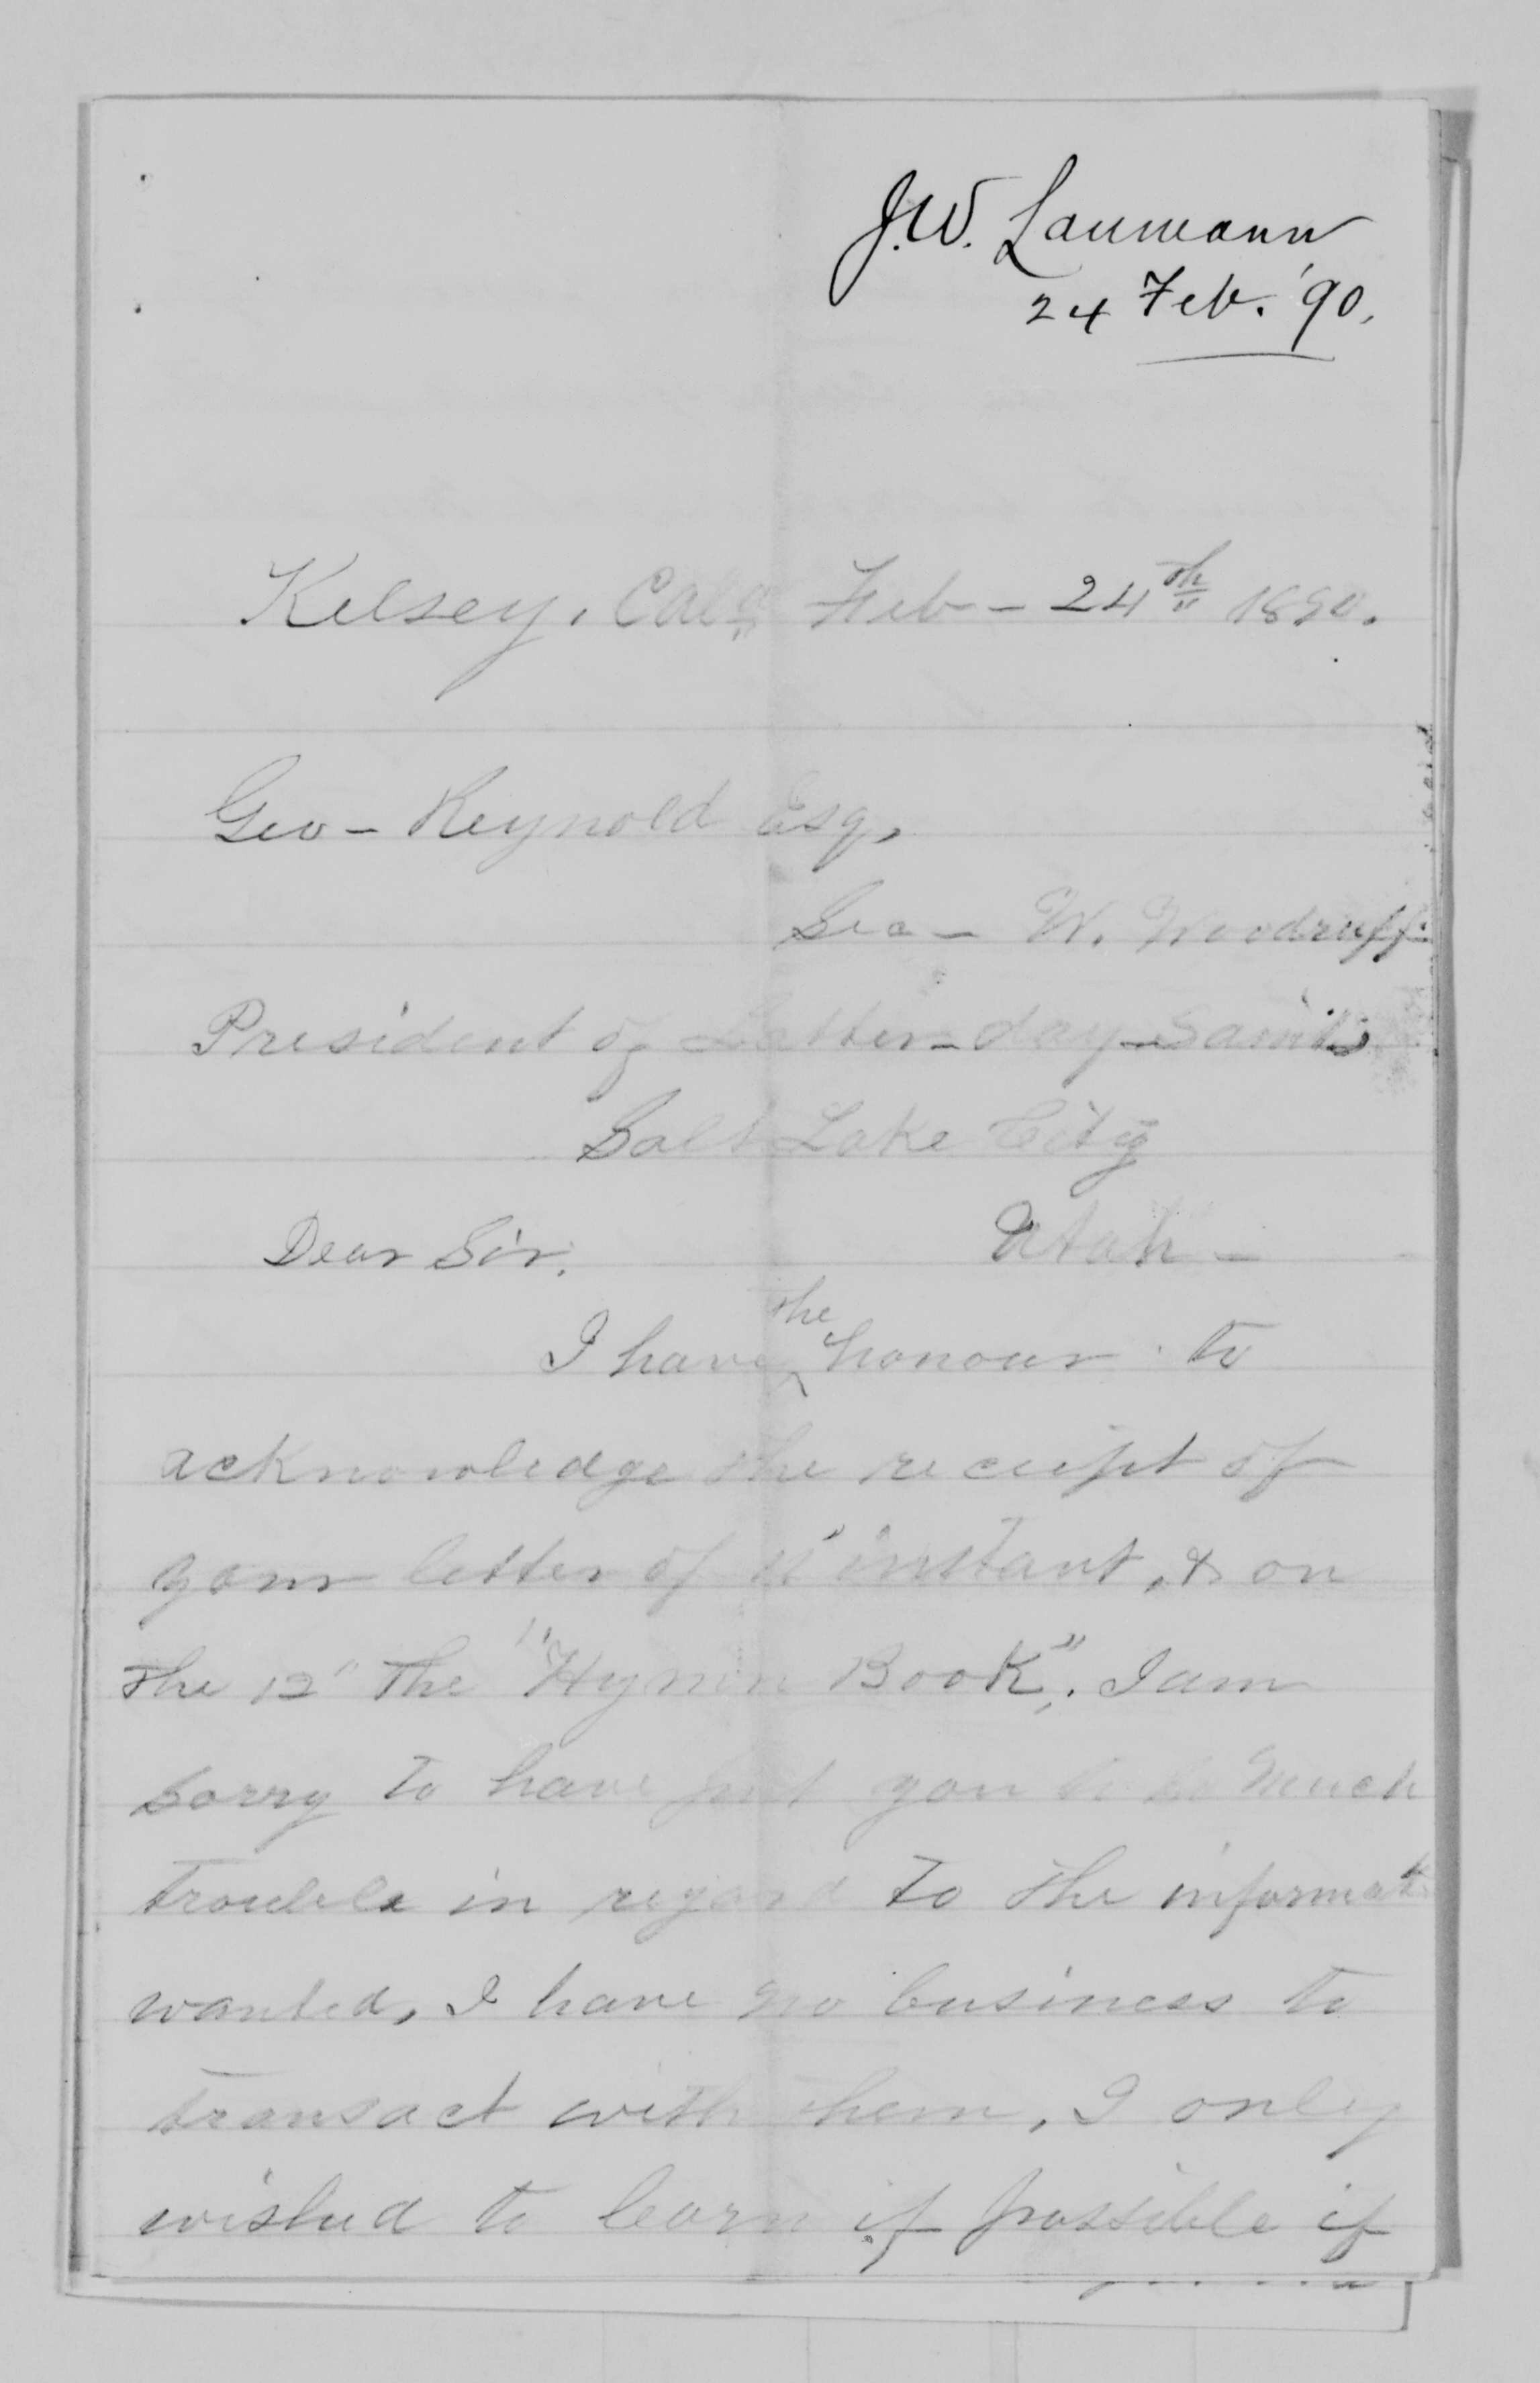 J.W. Laumann
24 Feb. '90.
Kelsey, Cala Feb- 24th 1890.
Geo- Reynold Esq,
Sec- W. Woodruff.
President of Latter-day-Saints
Salt Lake City
Dear Sir. Utah-
the
I have ^ honour to
acknowledge the receipt of
your letter of instant, & on
the 12" the "Hymn Book". I am
sorry to have put you to so much
trouble in regard to the informat
wanted, I have no business to
transact with them, I only
wished to learn if possible if